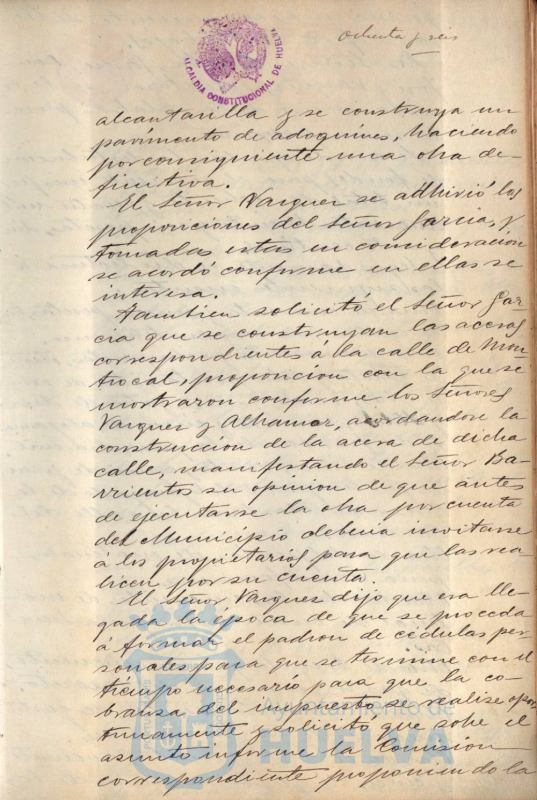 Ochenta y seis
ALCALDIA CONSTITUCIONAL DE HUELVA
alcantarilla y se construya un
pavimento de adoquines, haciendo
por consiguiente una obra de-
finitiva.
El Señor Vazquez se adhirió los
proposiciones del Señor Garcia, y
tomadas estas en consideración
se acordó conforme en ellas se
interesa.
Tambien solicitó el Señor Gar-
cia que se construyan las aceras
correspondientes á la calle de Mon
trocal, proposicion con la que se
mostraron conforme los Señores
Vazquez y Alhamar, acordandose la
construccion de la acera de dicha
calle, manifestando el Señor Ba-
rrientos su opinion de que antes
de ejecutarse la obra por cuenta
del Municipio deberia invitarse
á los propietarios para que las rea-
licen por su cuenta.
El Señor Vazquez dijo que era lle-
gada la época de que se proceda
á formar el padron de cédulas per-
sonales para que se termine con el
tiempo necesario para que la co-
branza del impuesto se realise opor
tunamente y solicitó, que sobe el
asunto informe la Comision
correspondiente proponiendo la
Ayuntamiento de
HUELVA